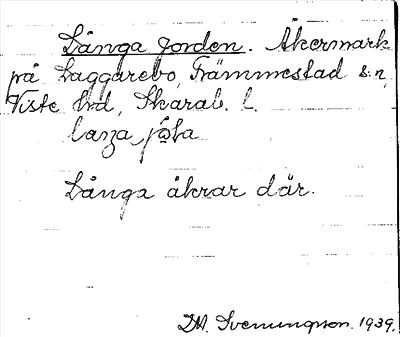 Långa jorden. Åkermark
på Laggarebo, Främmestad s:n,
Viste hrd, Skarab. l.

Långa åkrar där.
D.M. Svenungsson. 1939.